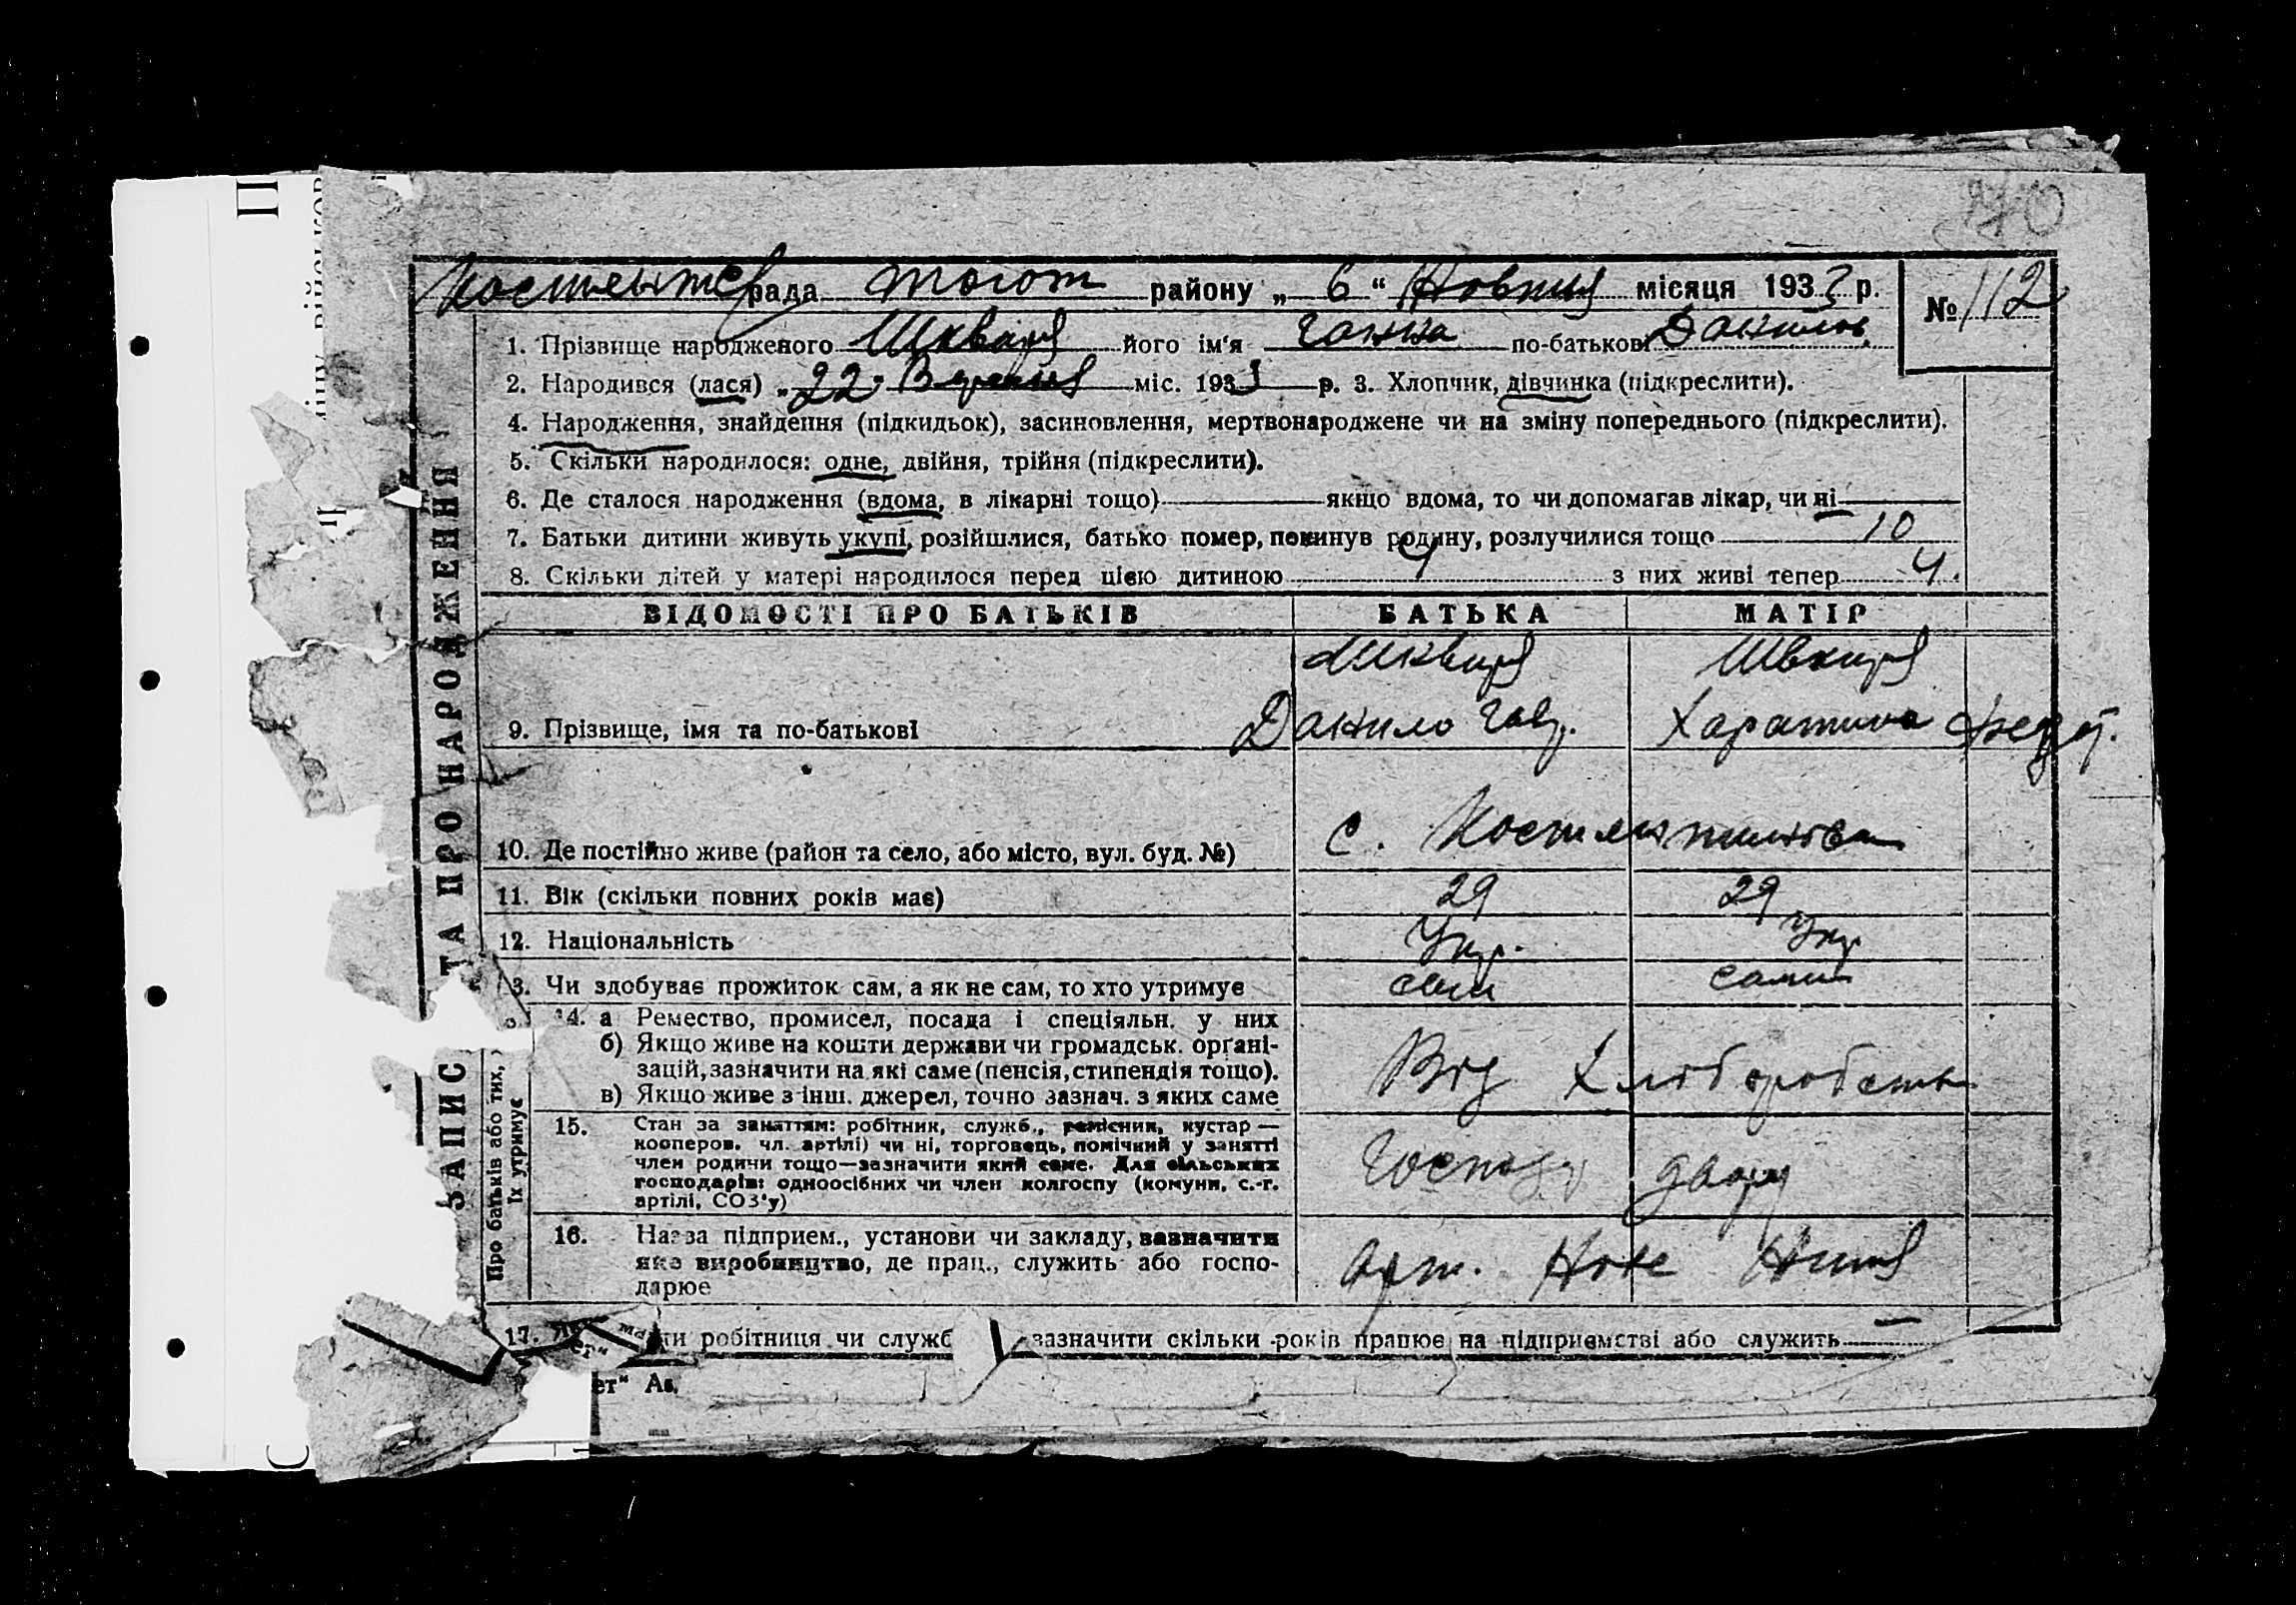 рада району „ 6 “ Жовтня місяця 193 р.
№ 112
1. Прізвище народженого Шкваря його ім'я Ганна по-батькові Данилов.
2. Народився (лася) „ 22 „ Вересня міс. 193 р. 3. Хлопчик, дівчинка (підкреслити).
4. Народження, знайдення (підкидьок), засиновлення, мертвонароджене чи на зміну попереднього (підкреслити).
5. Скільки народилося: одне, двійня, трійня (підкреслити).
6. Де сталося народження (вдома, в лікарні тощо) якщо вдома, то чи допомагав лікар, чи ні
7. Батьки дитини живуть укупі, розійшлися, батько помер, покинув родину, розлучилися тощо 10
8. Скільки дітей у матері народилося перед цією дитиною 4 з них живі тепер 4.
ВІДОМОСТІ ПРО БАТЬКІВ БАТЬКА МАТІР
9. Прізвище, імя та по-батькові Данило Гавр.
10. Де постійно живе (район та село, або місто, вул. буд. №) с. Костянтинівка
11. Вік (скільки повних років має) 29 29
12. Національність Укр. Укр
13. Чи здобуває прожиток сам, а як не сам, то хто утримує сам сама
14. а Ремество, промисел, посада і спеціяльн. у них
б) Якщо живе на кошти держави чи громадськ. орґані-
зацій, зазначити на які саме (пенсія, стипендія тощо).
в) Якщо живе з інш. джерел, точно зазнач. з яких саме
Від Хліборобств
15. Стан за заняттям: робітник, служб., ремісник, кустар —
кооперов. чл. артілі) чи ні, торговець, помічний у занятті
член родини тощо—зазначити який саме. Для сільських
господарів: одноосібних чи член колгоспу (комуни, с.-г.
артілі, СОЗ'у)
Господ двору
16. Назва підприєм., установи чи закладу, зазначити
яке виробництво, де прац., служить або госпо-
дарюе
Арт. Нове Життя
17. робітниця чи служб зазначити скільки років працює на підприємстві або служить —
ет" Ав.
ЗАПИС ТА ПРО НАРОДЖЕННЯ
Про батьків або тих,
їх утримує